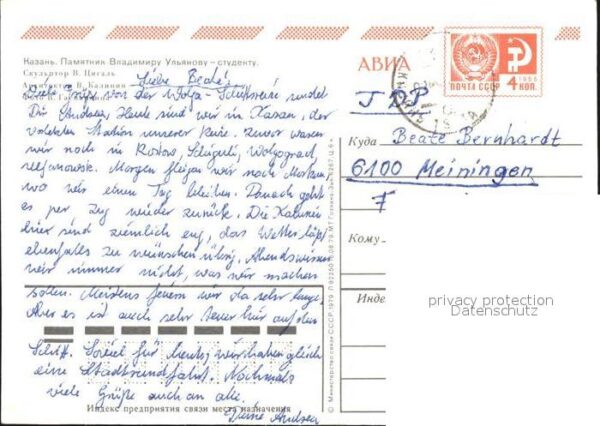 Казань. Памятник Владимиру Ульянову—студенту.
Скульптор В. Цигаль
Архитектор В. Калинин
Liebe Beate!
Viele Grüße von der Wolga-Schiffsreise sendet
Dir Andrea. Heute sind wir in Kasan, der
vorletzten Station unserer Reise. Zuvor waren
wir noch in Rostow, Wolgograd,
Uljanowsk. Morgen fliegen wir nach Moskau,
wo wir einen Tag bleiben. Danach geht
es per Zug wieder zurück. Die Kabinen
hier sind ziemlich eng, das Wetter läßt
ebenfalls zu wünschen übrig. Abends wissen
wir immer nicht, was wir machen
sollen. Meistens feiern wir da sehr lange.
Aber es ist auch sehr teuer hier auf dem
Schiff. Soviel für heute, wir haben gleich
eine Stadtrundfahrt. Nochmals
viele Grüße auch an alle.
Deine Andrea
Индекс предприятия связи места назначения
© Министерство связи СССР. 1979.
АВИА
ПОЧТА СССР
1966
4 КОП.
Куда
Beate Bernhardt
6100 Meiningen
Кому
Инде
privacy protection
Datenschutz